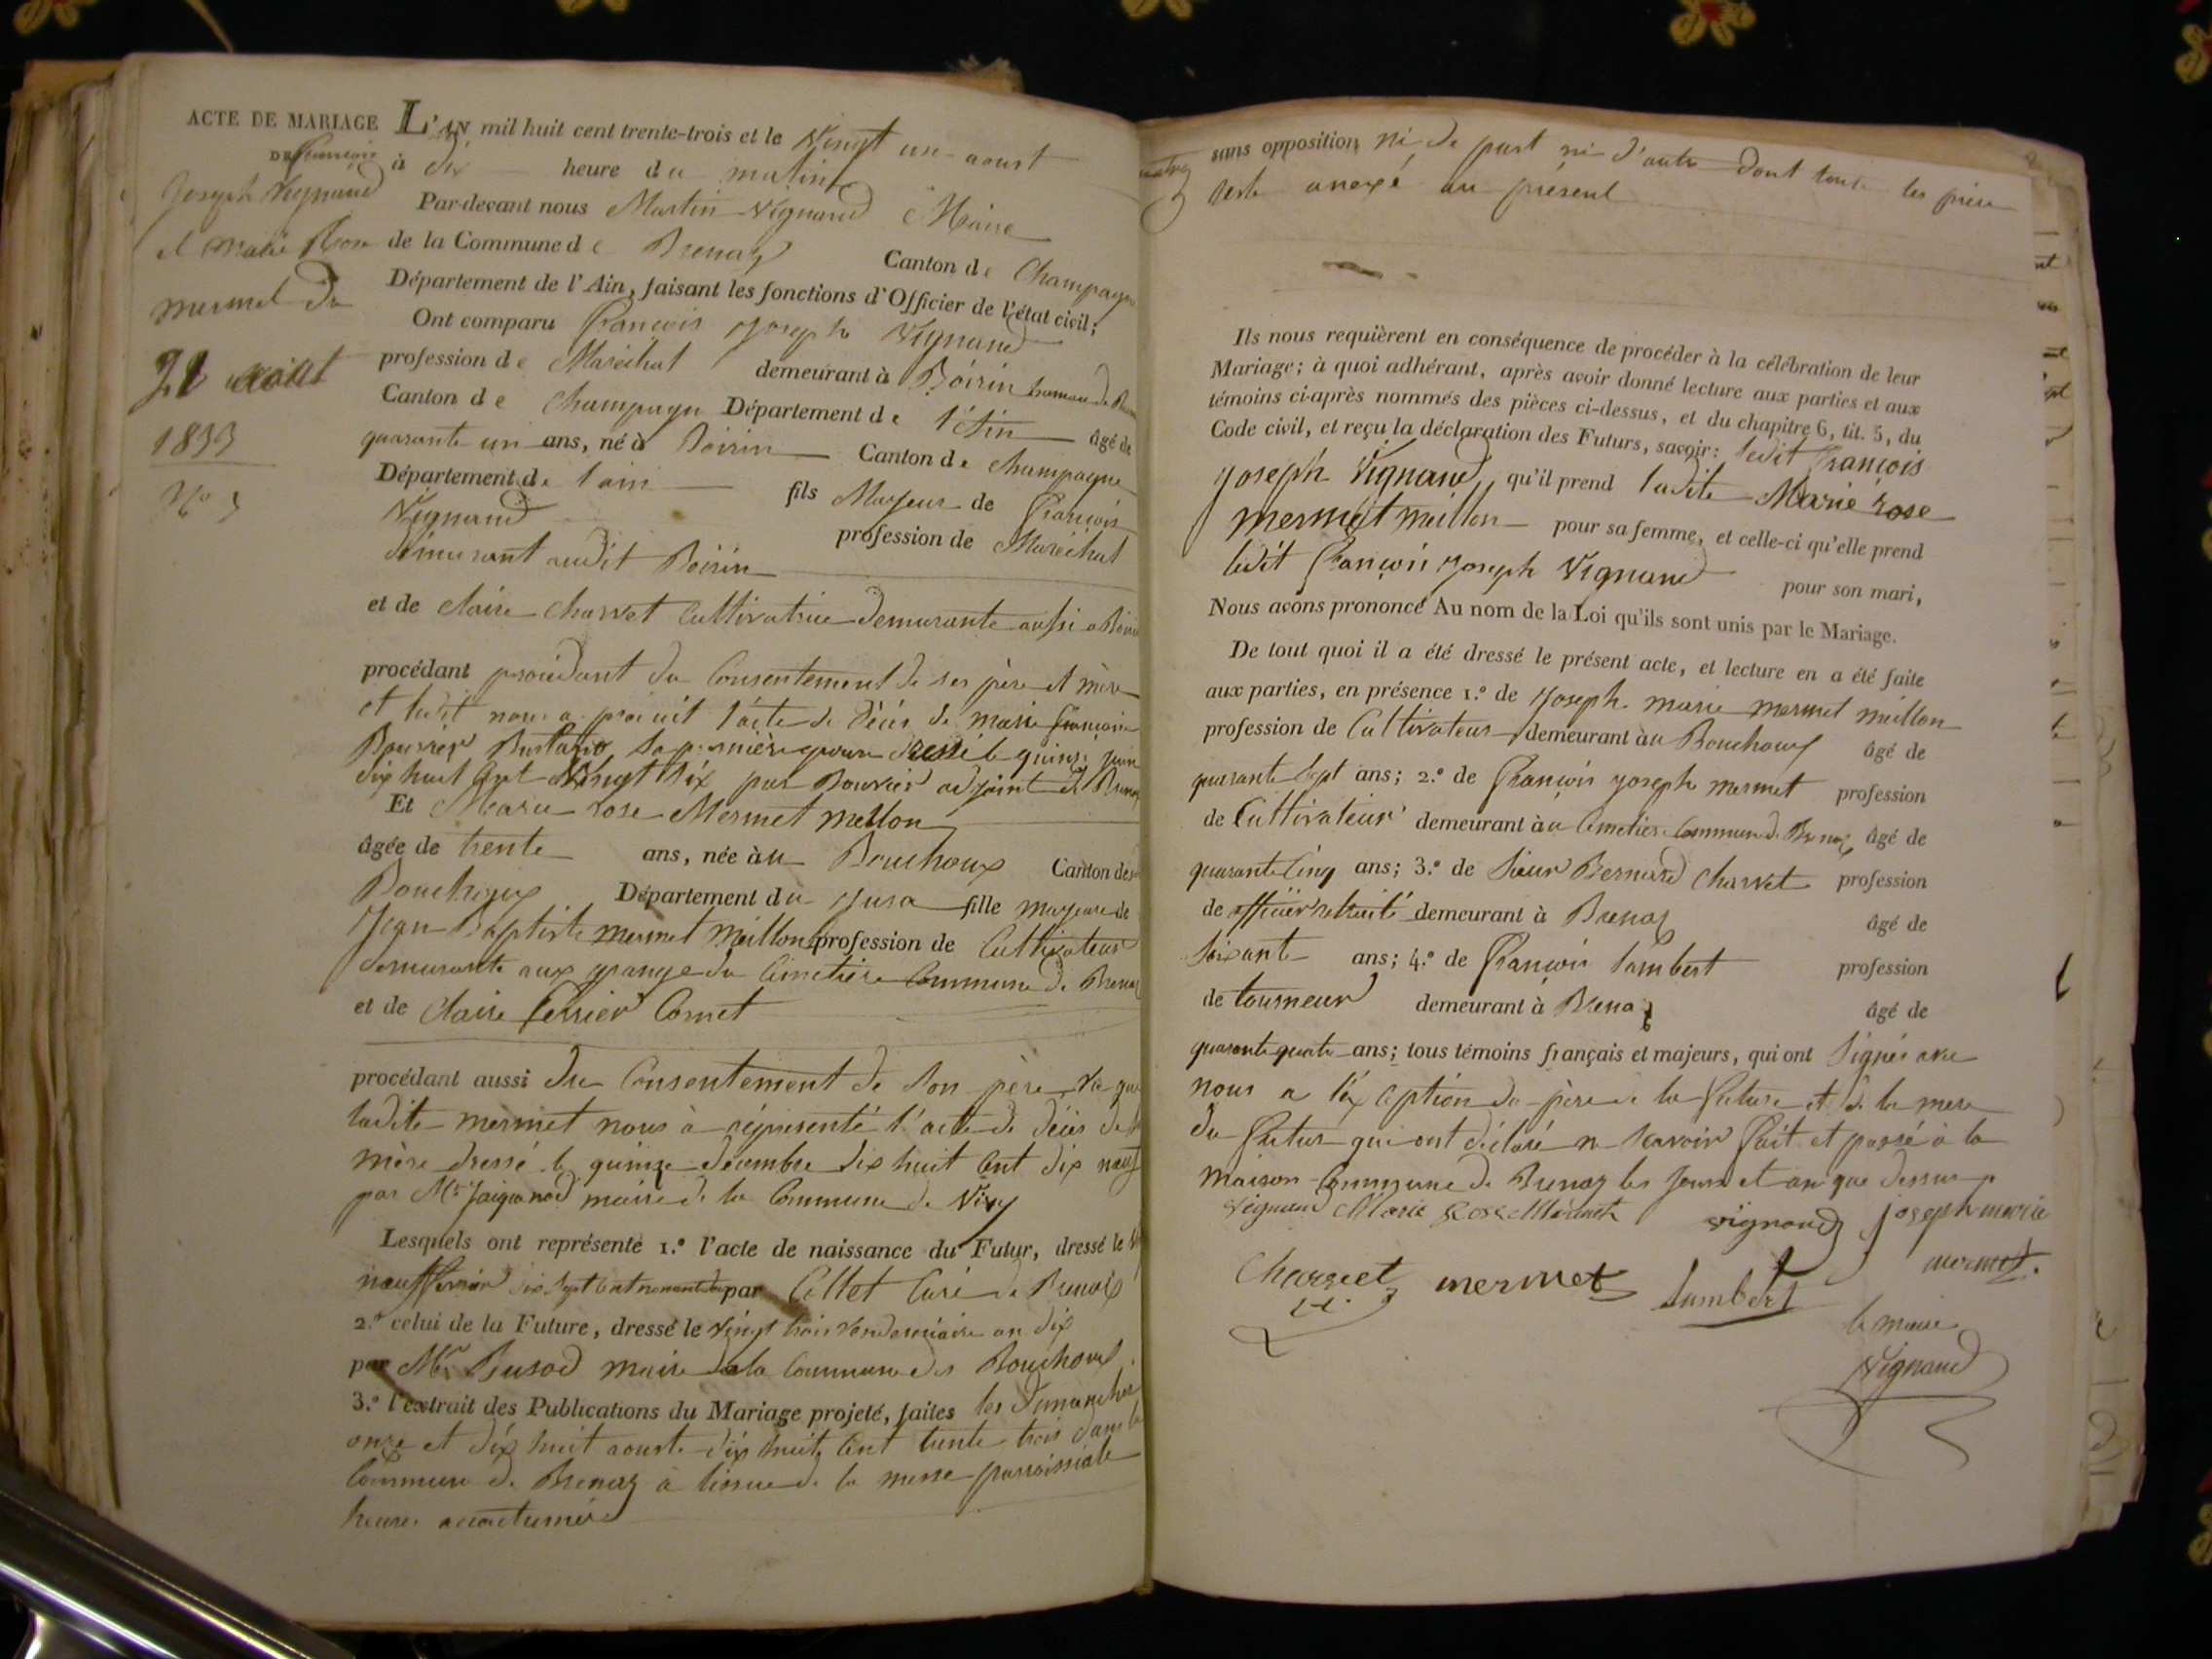 ACTE DE MARIAGE
DE françois
Joseph Vignand
et marie Rose
mermet du
21 aout
1833
N° 5
L'AN mil huit cent trente-trois et le Vingt un aoust
à dix heure du matin
Par-devant nous Martin Vignand Maire
de la Commune de Brenaz Canton de Champagne
Département de l'Ain, faisant les fonctions d'Officier de l'état civil;
Ont comparu françois joseph Vignand
profession de Maréchal demeurant à Boirin hameau de
Canton de Champagne Département de l'Ain âgé de
quarante un ans, né à Boirin Canton de champagne
Département de lain fils Mayeur de françois
Vignand profession de Maréchal
démurant audit Boirin
et de claire charvet Cultivatrice demurante aussi a
procédant procédant du Consentement de ses père et mère
et ledit nous a produit l'acte de décès de marie françoise
sa première dressé le quinze juin
dix huit Cent Vingt Six par Bouvier adjoint de
Et Marie rose Mermet meillon
âgée de trente ans, née àu Bouchoux Canton des
Bouchoux Département du Jura fille mayeure de
Jean Baptiste mermet Meillon profession de Cultivateur
demurante aux grange du Cimetiére Commune de Brenaz
et de Claire perrier Cornet
procédant aussi du Consentement de Son père vu que
ladite mermet nous à réprésenté l'acte de décès de
mère dressé le quinze décembre dix huit Cent dix neuf
par Mr maire de la Commune de Viry
Lesquels ont représenté 1.° l'acte de naissance du Futur, dressé le
neuf février dix Sept Cent par Collet Curé de Brenaz
2.° celui de la Future, dressé le vingt trois vendemiaire an dix
par Mr maire de la Commune des Bouchoux
3.° l'extrait des Publications du Mariage projeté, faites les dimanches
onze et dix huit aoust dix huit Cent trente trois dans la
Commune de Brenaz à lissue de la messe parroissiale
heure accoutumée
sans opposition ni de part ni d'autre dont toute les pièce
reste anexé au présent
Ils nous requièrent en conséquence de procéder à la célébration de leur
Mariage; à quoi adhérant, après avoir donné lecture aux parties et aux
témoins ci-après nommés des pièces ci-dessus, et du chapitre 6, tit. 5, du
Code civil, et reçu la déclaration des Futurs, savoir: ledit françois
joseph Vignand, qu'il prend ladite Marie rose
mermet meillon pour sa femme, et celle-ci qu'elle prend
ledit françois joseph Vignand pour son mari,
Nous avons prononcé Au nom de la Loi qu'ils sont unis par le Mariage.
De tout quoi il a été dressé le présent acte, et lecture en a été faite
aux parties, en présence 1.° de joseph marie mermet meillon
profession de Cultivateur demeurant àu Bouchoux âgé de
quarante Sept ans; 2.° de françois joseph mermet profession
de Cultivateur demeurant àu Cimetiere Commune de Brenaz âgé de
quarante Cinq ans; 3.° de Sieur Bernard Charvet profession
de officier retraité demeurant à Brenaz âgé de
Soixante ans; 4.° de françois Lambert profession
de tourneur demeurant à Brenaz âgé de
quarante quatre ans; tous témoins français et majeurs, qui ont Signés avec
nous a l'éxception du père de la future et de la mere
du futur qui ont déclaré ne scavoir fait et passé à la
maison Commune de Brenaz les jour et an que dessus
Vignand Marie Rose Mermet vignand joseph marie
Charvet mermet Lambert mermet
le maire
Vignand